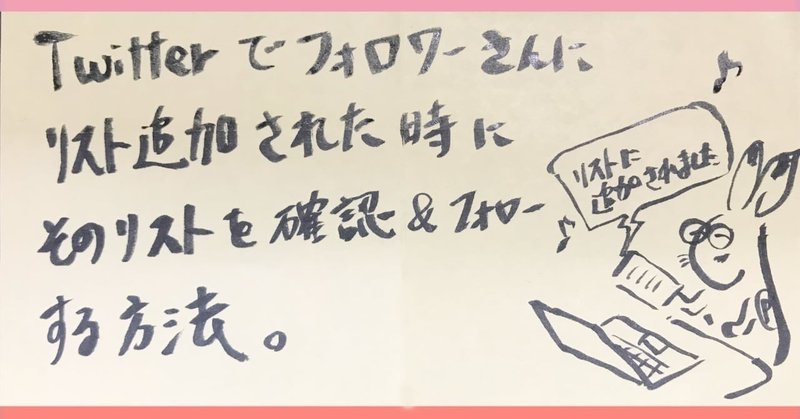 Twitterでフォロワーさんに
リスト追加された時に
そのリストを確認&フォロー
する方法。
リストに
追加されました